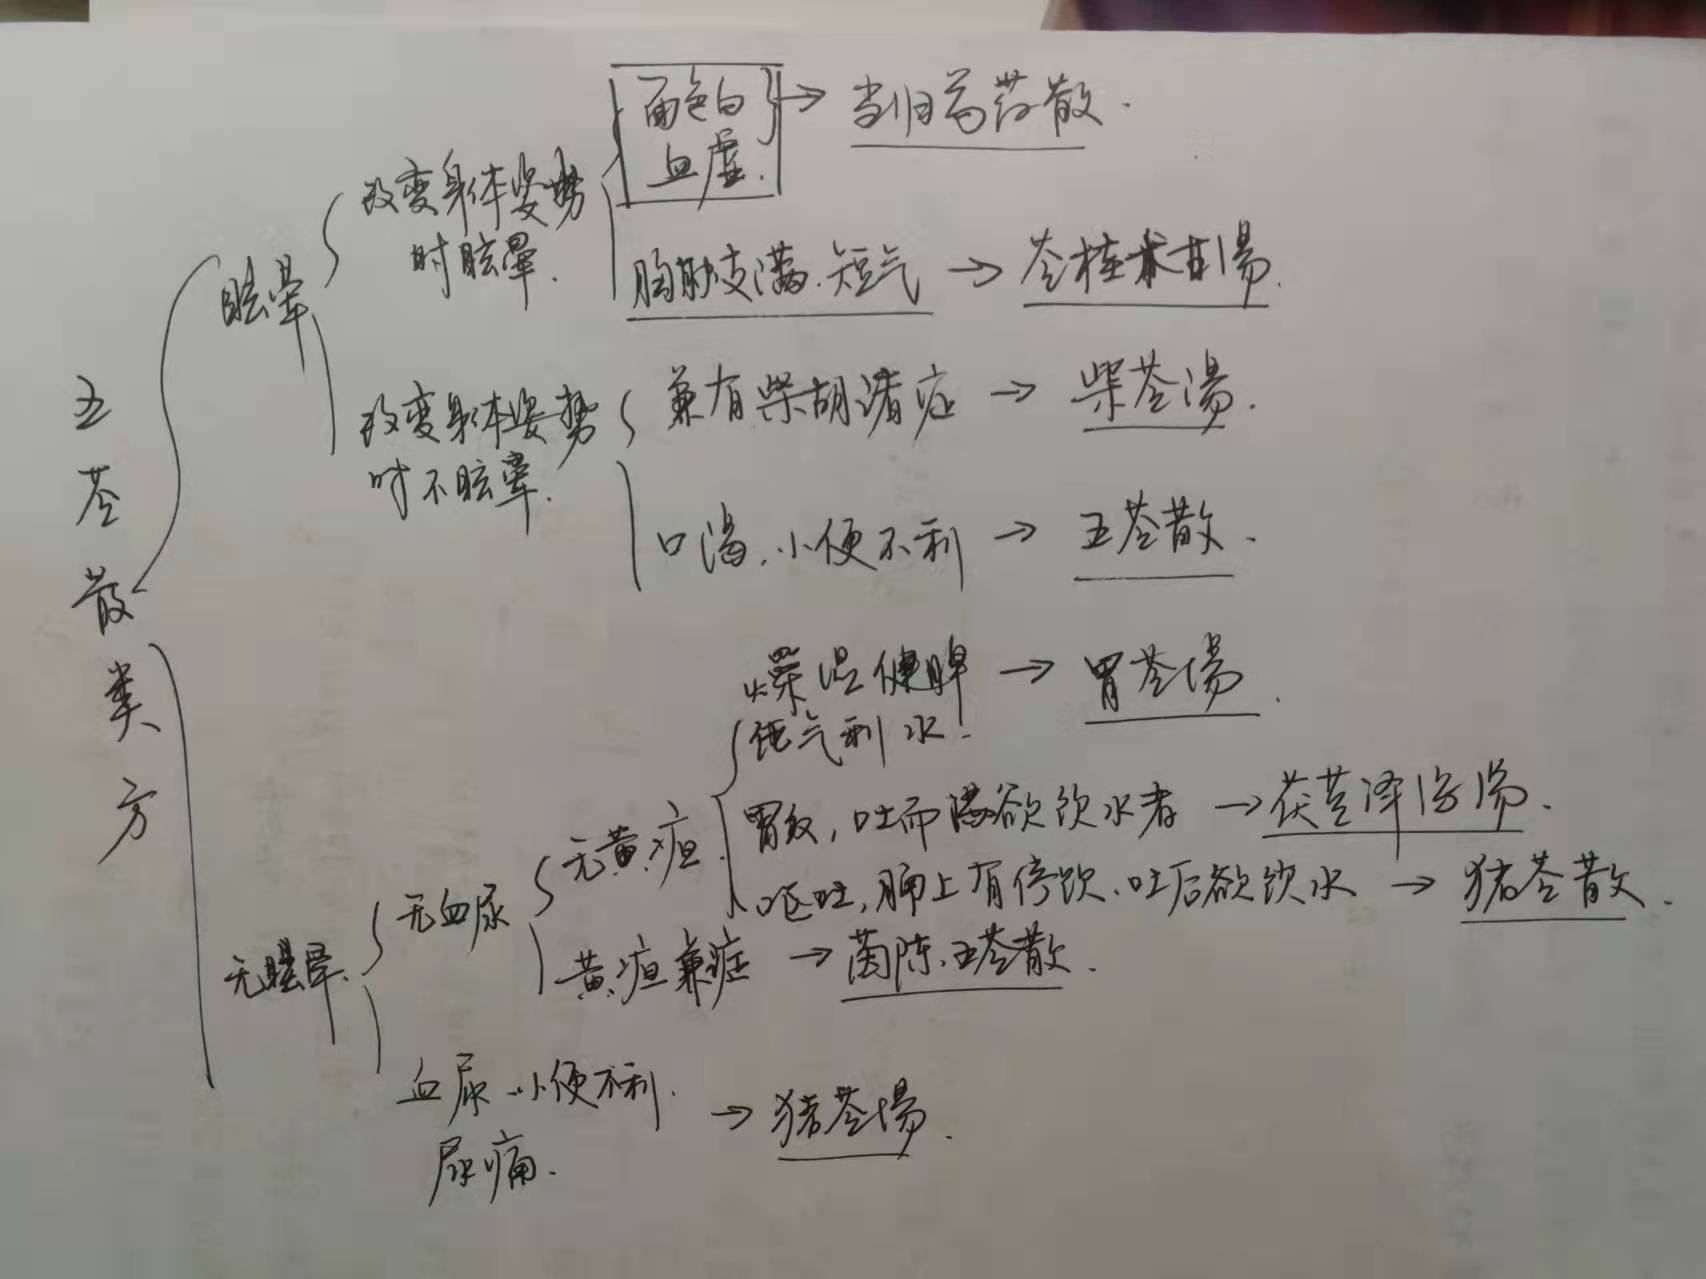 五苓散类方
眩晕
改变身体姿势
时眩晕.
面色白
血虚.
→ 当归芍药散.
胸胁支满.短气 → 苓桂术甘湯.
改变身体姿势
时不眩晕.
兼有柴胡诸症 → 柴苓湯.
口渴.小便不利 → 五苓散.
无眩晕.
无血尿
无黄疸.
燥湿健脾 → 胃苓湯.
化气利水.
胃反,吐而渴欲饮水者 → 茯苓泽泻湯.
呕吐,膈上有停饮.吐后欲饮水 → 猪苓散.
黄疸兼症 → 茵陈五苓散.
血尿.小便不利.
尿痛.
→ 猪苓湯.